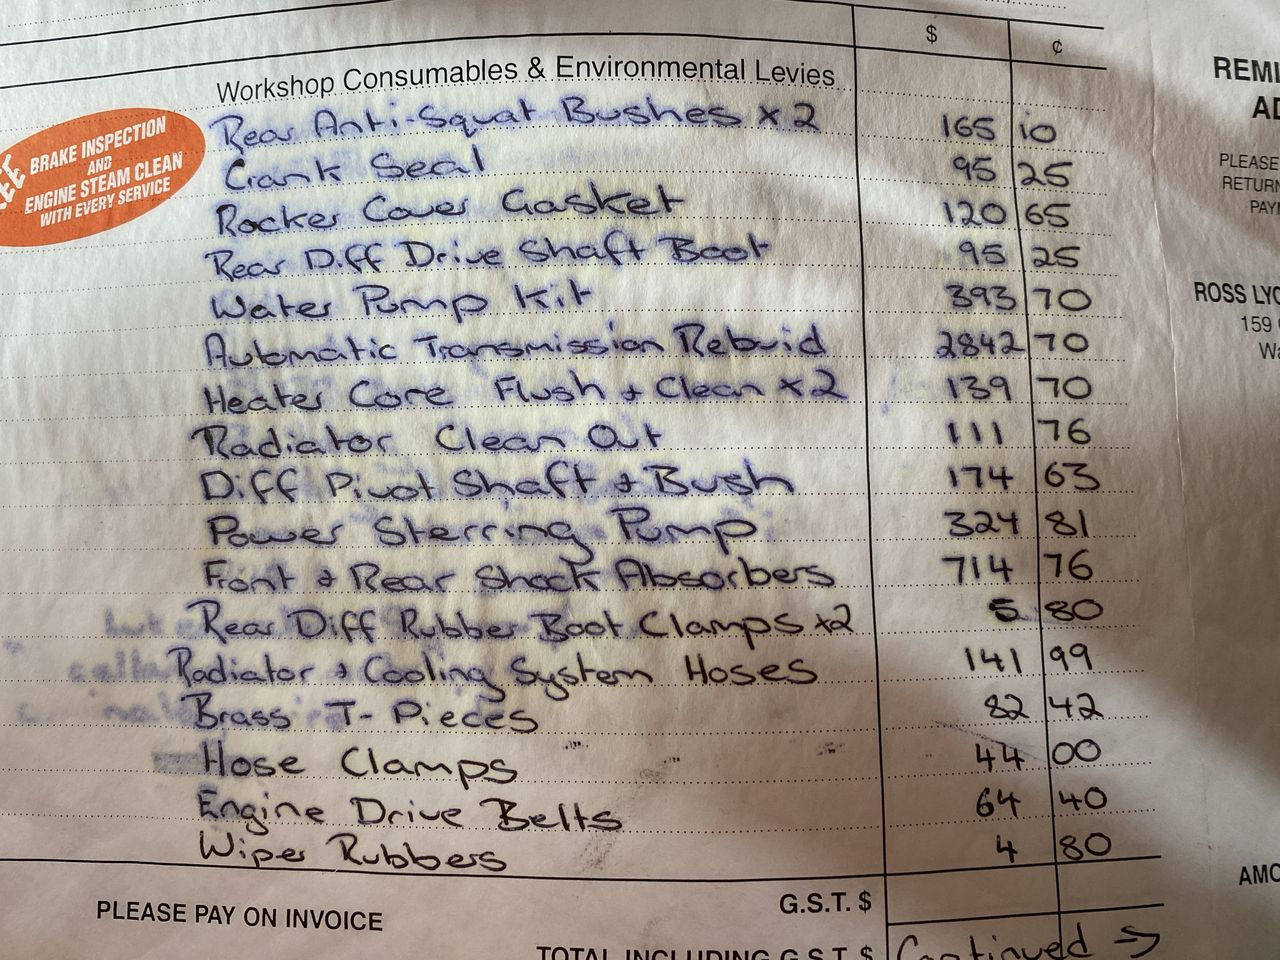 $ ¢
Workshop Consumables & Environmental Levies
Rear Anti-Squat Bushes x 2 165 10
Crank Seal 95 25
Rocker Cover Gasket 120 65
Rear Diff Drive Shaft Boot 95 25
Water Pump Kit 393 70
Automatic Transmission Rebuid 2842 70
Heater Core Flush + Clean x 2 139 70
Radiator Clean Out 111 76
Diff Pivot Shaft + Bush 174 63
Power Sterring Pump 324 81
Front + Rear Shock Absorbers 714 76
Rear Diff Rubber Boot Clamps x2 5 80
Radiator + Cooling System Hoses 141 99
Brass T-Pieces 82 42
Hose Clamps 44 00
Engine Drive Belts 64 40
Wiper Rubbers 4 80
G.S.T. $
PLEASE PAY ON INVOICE
TOTAL INCLUDING G.S.T. $ Continued →
BRAKE INSPECTION
AND
ENGINE STEAM CLEAN
WITH EVERY SERVICE
PLEASE
RETURN
ROSS
159